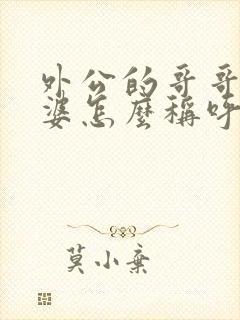 外公的哥哥
婆怎麼稱呼
莫小棄